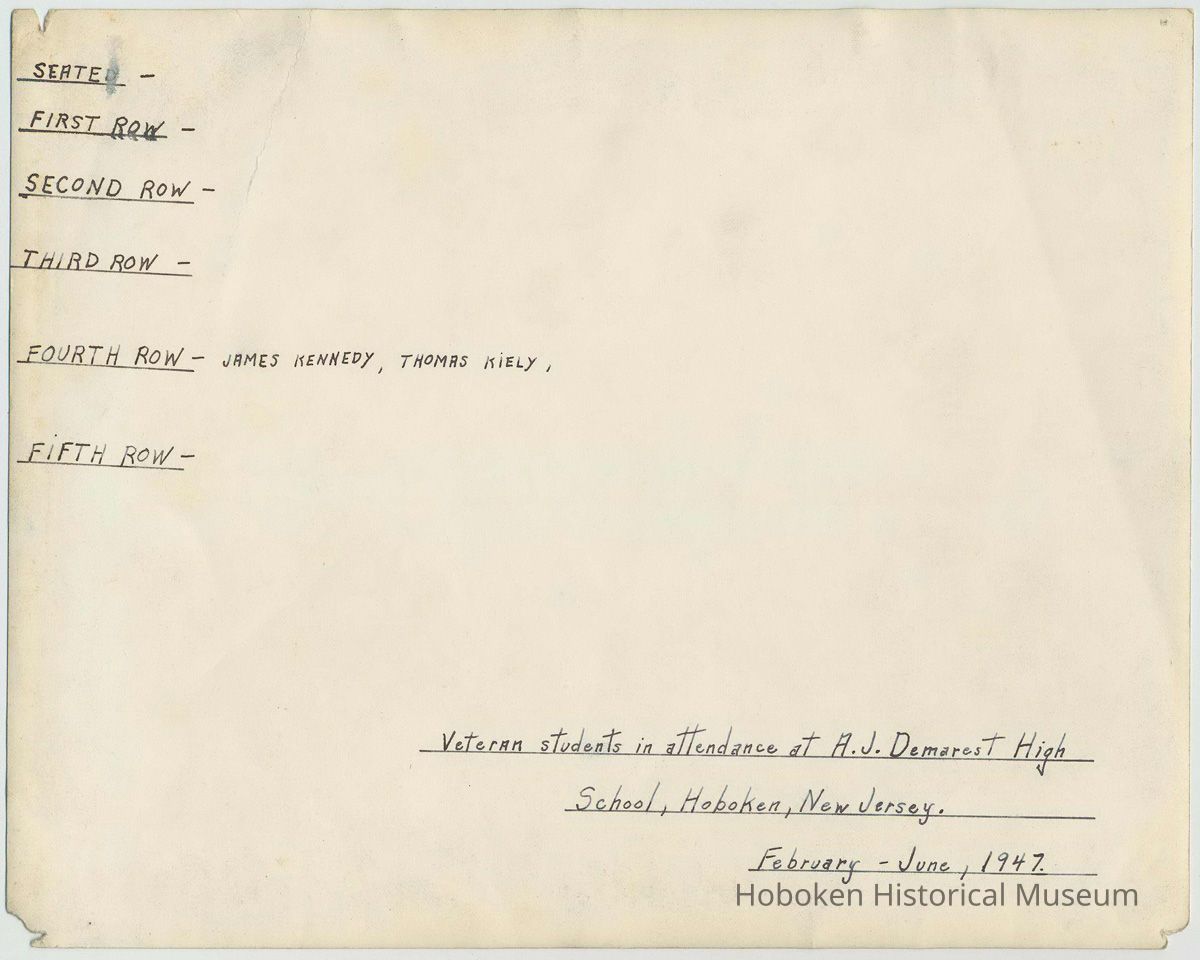 SEATED -
FIRST ROW -
SECOND ROW -
THIRD ROW -
FOURTH ROW - JAMES KENNEDY, THOMAS KIELY,
FIFTH ROW -
Veteran students in attendance at A.J. Demarest High
School, Hoboken, New Jersey.
February - June, 1947.
Hoboken Historical Museum